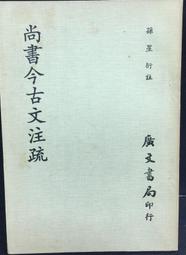 孫星衍註
尚書今古文注疏
廣文書局印行